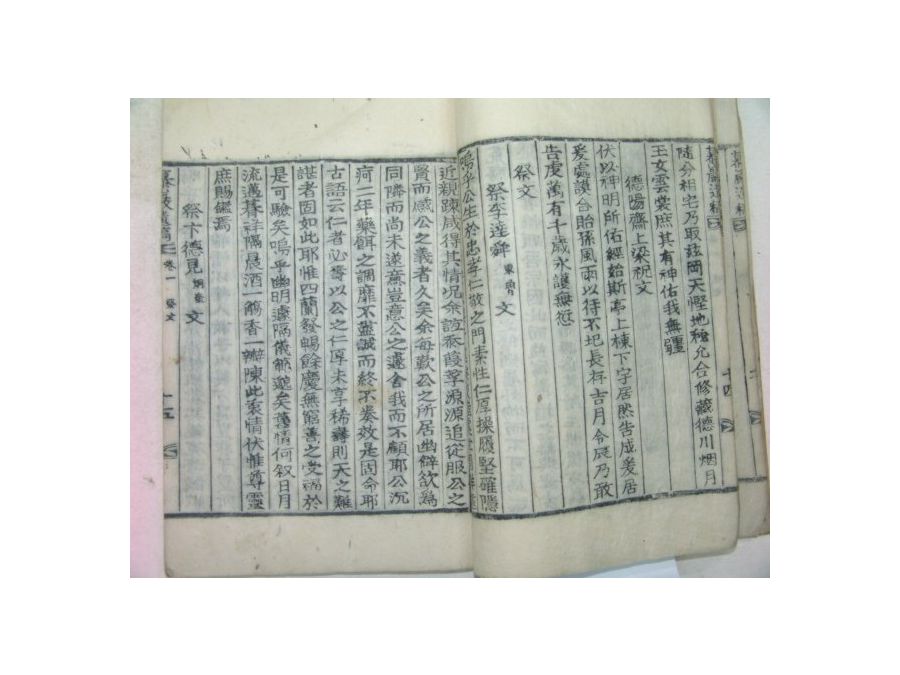 隨分相宅乃取玆岡天慳地秘允合修藏德川烟月
玉女雲裳庶其有神佑我無疆
德陽齋上梁祝文
伏以神明所佑經始斯亭上棟下宇居然告成爰居
爰處讌合貽孫風雨以待不圮長存吉月令辰乃敢
告虔萬有千歲永護無愆
祭文
祭李達舜東曾文
嗚乎公生於忠孝仁敬之門素性仁厚操履堅確隱
近親踈咸得其情況余誼忝葭莩源源追從服公之
賢而感公之義者久矣余每歎公之所居幽僻欲爲
同隣而尚未遂意豈意公之遽舍我而不顧耶公沉
痾二年藥餌之調靡不盡誠而終不奏效是固命耶
古語云仁者必壽以公之仁厚未享稀壽則天之難
諶者固如此耶惟四蘭發暢餘慶無窮善之受福於
是可驗矣嗚乎幽明遽隔儀範邈矣舊情何叙日月
流邁暮祥隔晨酒一觴香一瓣陳此哀情伏惟尊靈
庶賜鑑焉
祭卞德見文
卷一 祭文 十五